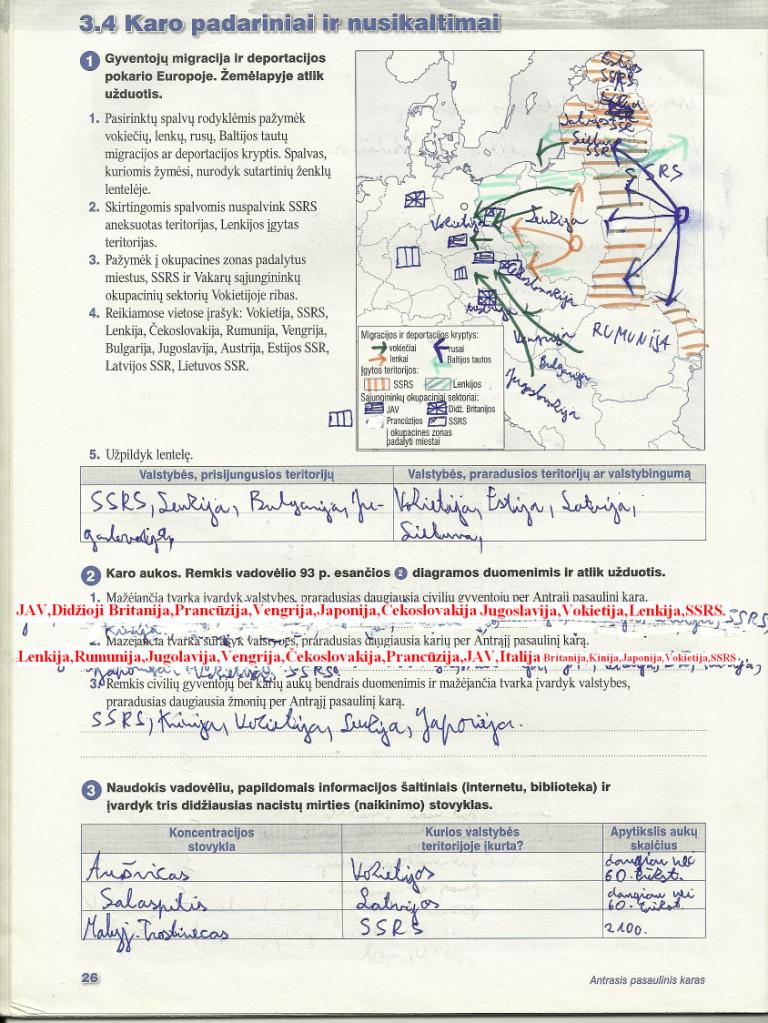 3.4 Karo padariniai ir nusikaltimai
1 Gyventojų migracija ir deportacijos
pokario Europoje. Žemėlapyje atlik
užduotis.
1. Pasirinktų spalvų rodyklėmis pažymėk
vokiečių, lenkų, rusų, Baltijos tautų
migracijos ar deportacijos kryptis. Spalvas,
kuriomis žymėsi, nurodyk sutartinių ženklų
lentelėje.
2. Skirtingomis spalvomis nuspalvink SSRS
aneksuotas teritorijas, Lenkijos įgytas
teritorijas.
3. Pažymėk į okupacines zonas padalytus
miestus, SSRS ir Vakarų sąjungininkų
okupacinių sektorių Vokietijoje ribas.
4. Reikiamose vietose įrašyk: Vokietija, SSRS,
Lenkija, Čekoslovakija, Rumunija, Vengrija,
Bulgarija, Jugoslavija, Austrija, Estijos SSR,
Latvijos SSR, Lietuvos SSR.
Estijos
SSRS
Latvijos
SSR
SSRS
Vokietija
Lenkija
Čekoslovakija
Austrija
Vengrija
RUMUNIJA
Bulgarija
Jugoslavija
Migracijos ir deportacijos kryptys:
vokiečiai rusai
lenkai Baltijos tautos
Įgytos teritorijos:
SSRS Lenkijos
Sąjungininkų okupaciniai sektoriai:
JAV Didž. Britanijos
Prancūzijos SSRS
į okupacines zonas
padalyti miestai
5. Užpildyk lentelę.
Valstybės, prisijungusios teritorijų Valstybės, praradusios teritorijų ar valstybingumą
SSRS, Lenkija, Bulgarija, Ju- Vokietija, Estija, Latvija,
goslavija, Lietuva,
2 Karo aukos. Remkis vadovėlio 93 p. esančios 2 diagramos duomenimis ir atlik užduotis.
1. Mažėjančia tvarka įvardyk valstybes, praradusias daugiausia civilių gyventojų per Antrąjį pasaulinį karą.
JAV,Didžioji Britanija,Prancūzija,Vengrija,Japonija,Čekoslovakija Jugoslavija,Vokietija,Lenkija,SSRS.
SSRS,
Kinija.
2. Mažėjančia tvarka surašyk valstybes, praradusias daugiausia karių per Antrąjį pasaulinį karą.
Lenkija,Rumunija,Jugolavija,Vengrija,Čekoslovakija,Prancūzija,JAV,Italija Britanija,Kinija,Japonija,Vokietija,SSRS
Japonija, Vokietija, SSRS.
3. Remkis civilių gyventojų bei karių aukų bendrais duomenimis ir mažėjančia tvarka įvardyk valstybes,
praradusias daugiausia žmonių per Antrąjį pasaulinį karą.
SSRS, Kinija, Vokietija, Lenkija, Japonija.
3 Naudokis vadovėliu, papildomais informacijos šaltiniais (internetu, biblioteka) ir
įvardyk tris didžiausias nacistų mirties (naikinimo) stovyklas.
Koncentracijos Kurios valstybės Apytikslis aukų
stovykla teritorijoje įkurta? skaičius
Aušvicas Vokietijos daugiau nei
60. tūkst.
Salaspilis Latvijos daugiau nei
60. tūkst.
Malyj. Trostinecas SSRS 2100.
26 Antrasis pasaulinis karas